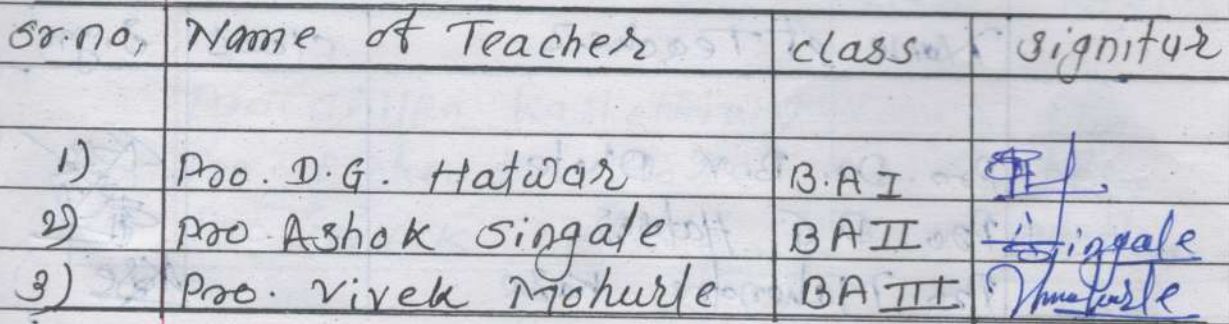 Sr.no, Name of Teacher class signitur
1) Pro. D.G. Hatwar B.A I
2) Pro Ashok Singale BA II Singale
3) Pro. Vivek Mohurle BA III